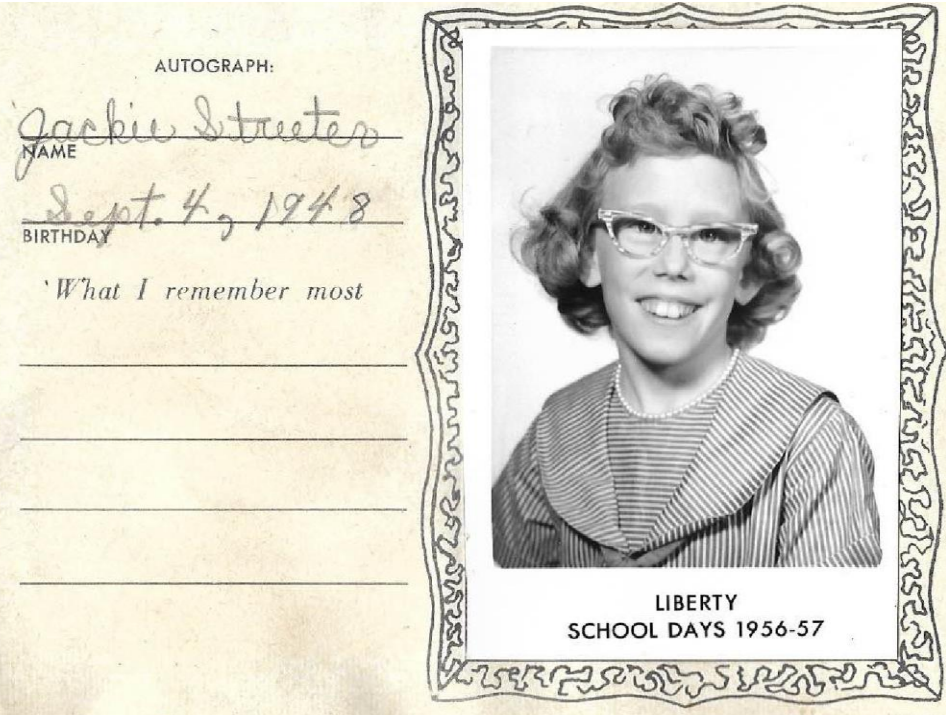 AUTOGRAPH:
Jackie Streeter
NAME
Sept. 4, 1948
BIRTHDAY
'What I remember most
LIBERTY
SCHOOL DAYS 1956-57